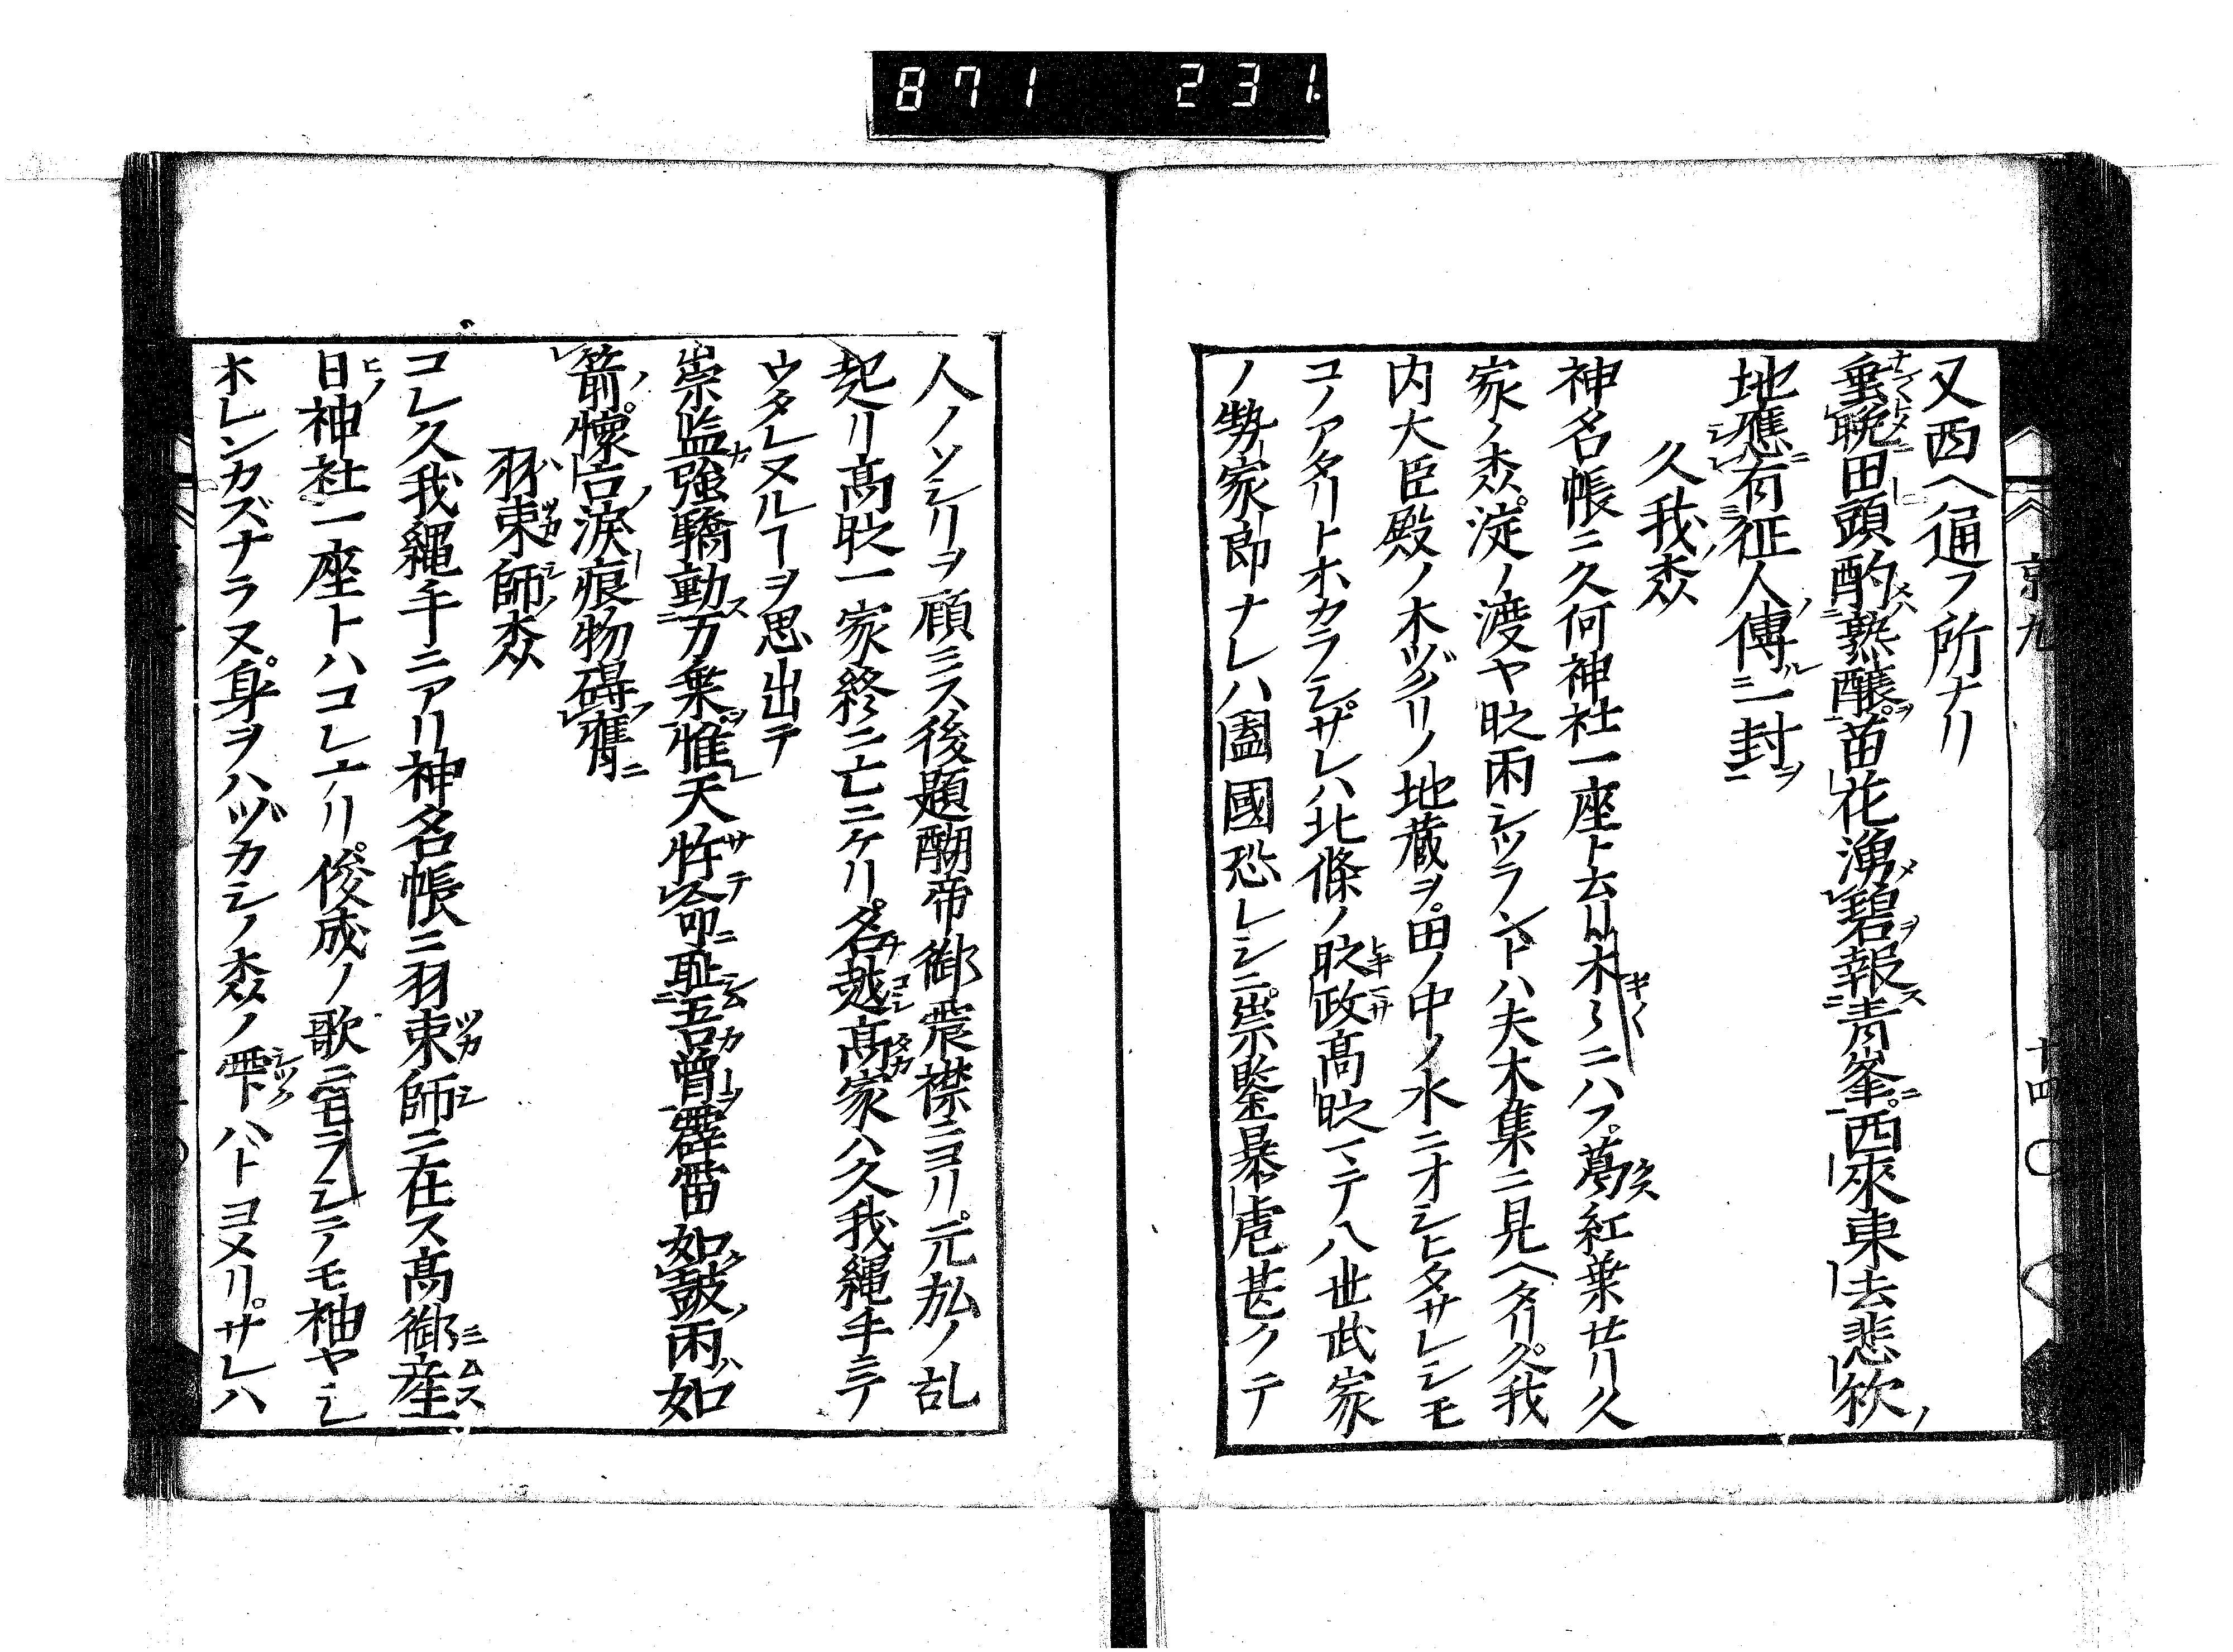 871 231
京九
十四
又西ヘ通フ所ナリ
垂睕田頭酌熟醸苗花湧碧報青峯西來東去悲欲
地應有征人傳一封
久我森
神名帳ニ久何神社一座ト云リ木々ニハフ葛紅葉せリ久
家ノ森淀ノ渡ヤ時雨シツラント八夫木集ニ見ヘタリ久我
内大臣殿ノ木ヅクリノ地蔵ヲ田ノ中ノ水ニオシヒタサレシモ
コノアタリトホカラシザレハ北條ノ時政高時マテ八世武家
ノ勢家郎ナレハ闔國恐レシニ崇鑒暴虐甚クテ
人ノソシリヲ顧ミス後題醐帝御震襟ニヨリ元弘ノ乱
起リ高時一家終ニ亡ニケリ名越高家ハ久我縄手ニテ
ウタレヌルヿヲ思出テ
崇監強驕動万乗惟天牾命耻吾曽霹雷如鼓雨如
箭懐古涙痕物碍膺
羽束師森
コレ久我縄手ニアリ神名帳ニ羽束師ニ在ス高御産
日神社一座トハコレナリ俊成ノ歌ニモラシテモ袖ヤシ
ホレンカズナラヌ身ヲハヅカシノ森ノ雫ハトヨメリサレハ